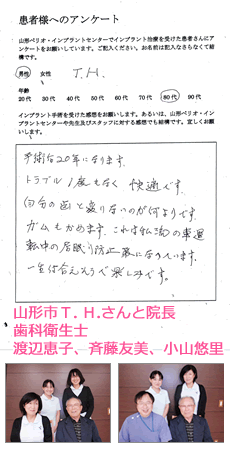 患者様へのアンケート
山形ペリオ・インプラントセンターでインプラント治療を受けた患者さんにア
ンケートをお願いしています。ご記入ください。お名前は記入なさらなくて結
構です。
男性 女性 T.H.
年齢
20代 30代 40代 50代 60代 70代 80代 90代
インプラント手術を受けた感想をお願いします。あるいは、山形ペリオ・イン
プラントセンターや先生及びスタッフに対する感想でも結構です。宜しくお願
いします。
手術後20年になります。
トラブル1度もなく 快適です。
(自分の歯)と変りないのが何よりです。
ガムもかめます。これは仏流の車運
転中の居眠り防止策になっています。
一生は合えそうで楽しみです。
山形市T.H.さんと院長
歯科衛生士
渡辺恵子、斉藤友美、小山悠里